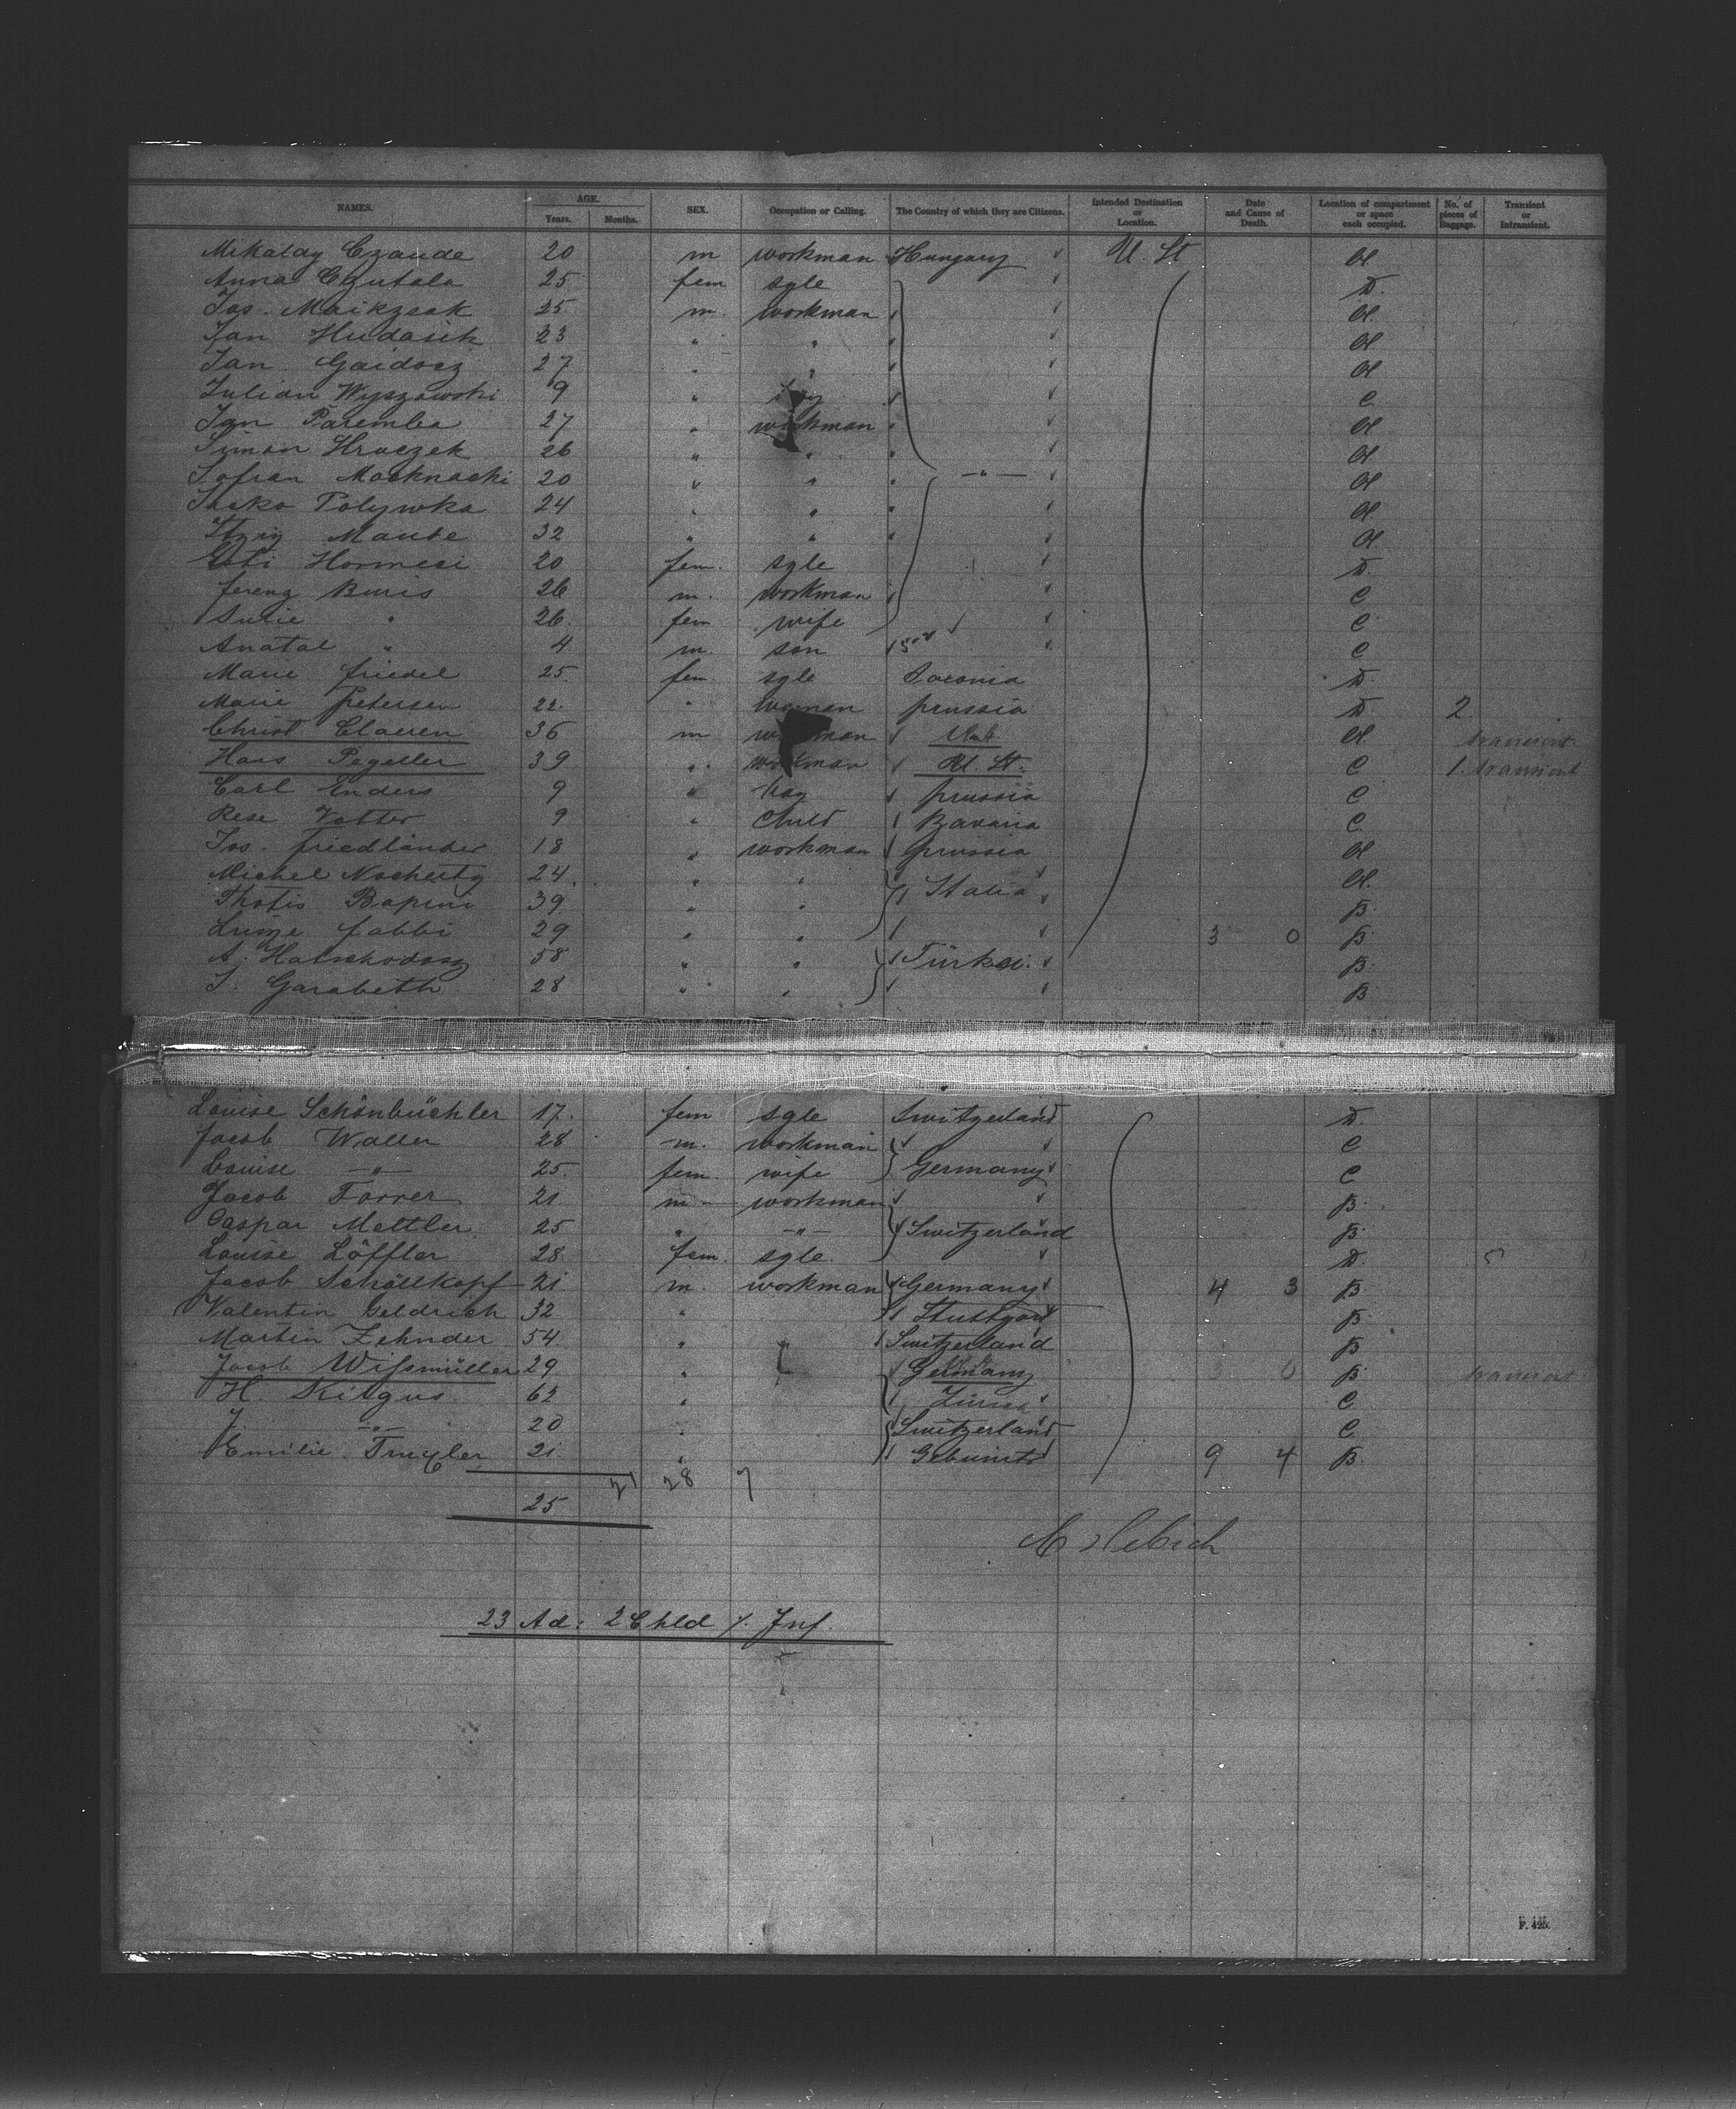 NAMES. AGE. Years. Months. SEX. Occupation or Calling. The Country of which they are Citizens. Intended Destination or Location. Date and Cause of Death. Location of compartment or space each occupied. No. of pieces of Baggage. Transient or Intransient.
Mikalay Czaude 20 m workman Hungary U. St
Anna Czutala 25 fem sgle D.
Jos. Maikzsak 25 m. workman
Jan Hudasik 23 " "
Jan Gaidosz 27 " "
Julian Wyszowski 9 " C.
Jan Paremba 27 " workman
Simon Hruczek 26 " "
Sofran Macknacki 20 " " —"—
Jacko Polywka 24 " "
Itzig Maute 32 " "
Hormesi 20 fem. sgle D.
ferenz Buris 26 m. workman C
Susie " 26 fem wife C
Anatal " 4 m. son C
Marie friedel 25 fem. sgle D.
Marie petersen 22 " woman prussia D. 2
Christ Clausen 36 m workman transient
Hans Pegeller 39 " workman U. St. C 1. transient
Carl Enders 9 " boy prussia C
Rese Votter 9 " Child Bavaria C
Jos. friedländer 18 " workman prussia
Michel 24 " " Italia
Thotis Bapini 39 " " B.
Luige fabbi 29 " " 3 0 B.
A. 58 " " Türkei. B.
J. Garabeth 28 " " B
Louise Schönbüchler 17. fem sgle Switzerland D.
Jacob Waller 28 m. workman C
Louise —"— 25 fem. wife Germany C
Jacob Forrer 21 m workman B.
Caspar Mettler 25 " —"— Switzerland B.
Louise Löffler 28. fem. sgle. D.
Jacob Schöllkopf 21 m. workman Germany 4 3 B.
Valentin Geldrich 32 " Stuttgart B.
Martin Zehnder 54. " " Switzerland B
Jacob Wißmüller 29 " Germany 0 B. transient
H. Kilgus 62 " Zürich C
J. —"— 20 " Switzerland C.
Emilie 21. " 9 4 B
21 28 7
25
23 Ad: 2 Chld /. Inf.
P. 425.